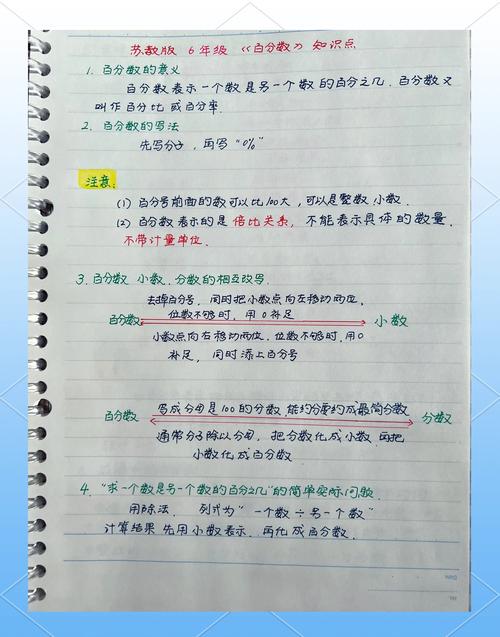 苏教版 6年级 《百分数》 知识点
1. 百分数的意义
百分数表示一个数是另一个数的百分之几. 百分数又
叫作百分比或百分率.
2. 百分数的写法
先写分子, 再写"%"
注意:
(1) 百分号前面的数可以比100大, 可以是整数, 小数.
(2) 百分数表示的是 倍比关系, 不能表示具体的数量.
不带计量单位.
3. 百分数 小数. 分数的相互改写.
去掉百分号, 同时把小数点向左移动两位,
位数不够时, 用0补足
百分数 小数
小数点向右移动两位. 位数不够时, 用0
补足, 同时添上百分号
百分数 写成分母是100的分数 能约分要约成最简分数 分数
通常分子除以分母, 把分数化成小数 再把
小数化成百分数
4. "求一个数是另一个数的百分之几"的简单实际问题.
用除法. 列式为" 一个数 ÷ 另一个数"
计算结果 先用小数表示. 再化成百分数.